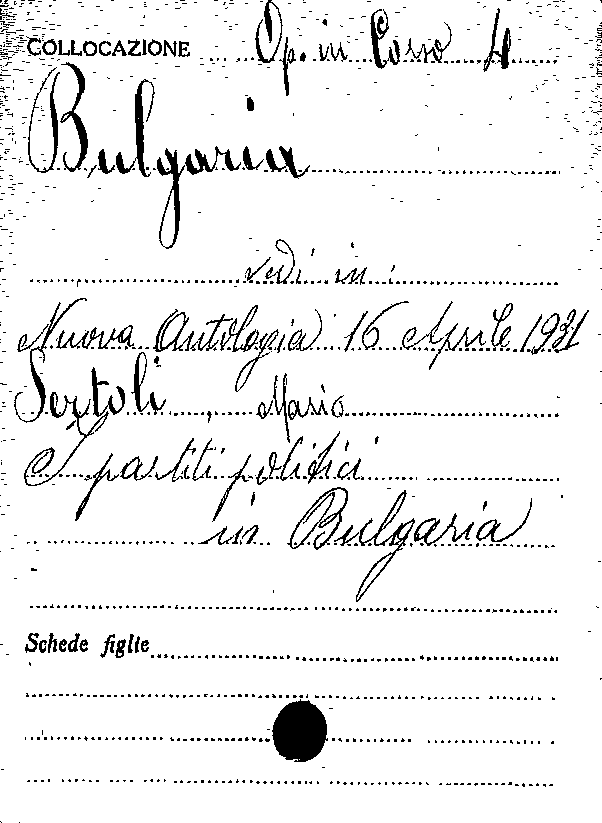 COLLOCAZIONE Op. in Corso 4
Bulgaria
vedi in:
Nuova Antologia 16 Aprile 1931
Sertoli, Mario
I partiti politici
in Bulgaria
Schede figlie